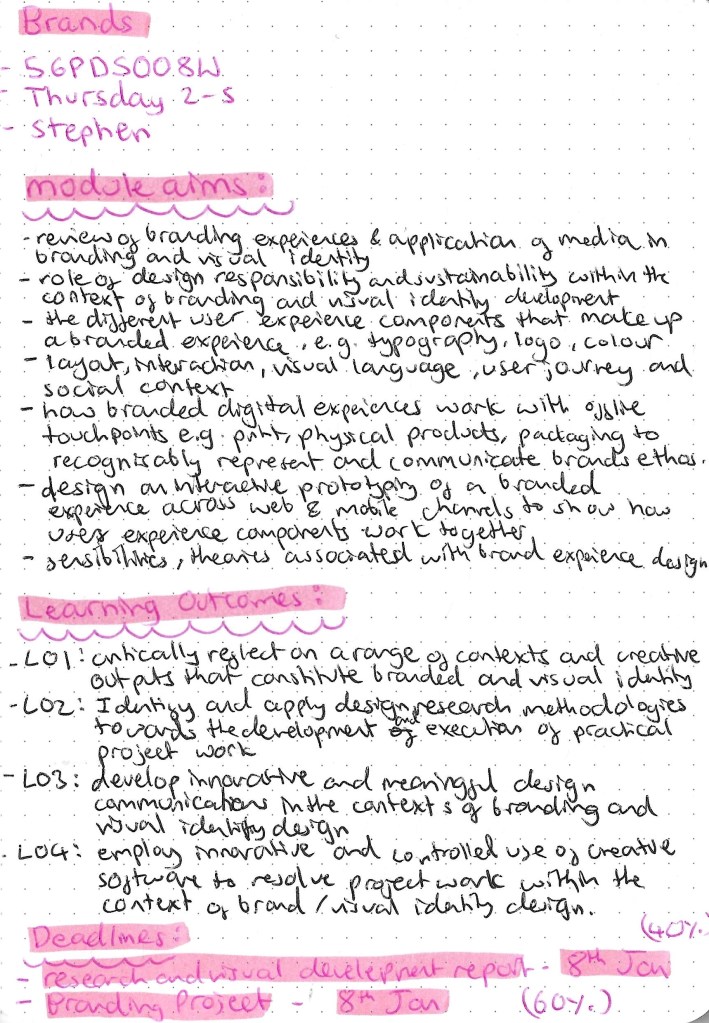 Brands
- 5GPDS008W
- Thursday 2-5
- Stephen
module aims:
- review of branding experiences & application of media in
branding and visual identity
- role of design responsibility and sustainability within the
context of branding and visual identity development
- the different user experience components that make up
a branded experience, e.g. typography, logo, colour
- layout, interaction, visual language, user journey and
social context
- how branded digital expeiences work with offline
touchpoints e.g. print, physical products, packaging to
recognisably represent and communicate brands ethos.
- design an interactive prototyping of a branded
experience across web & mobile channels to show how
user experience components work together
- sensibilities, theories associated with brand experience design
Learning Outcomes:
- LO1: critically reflect on a range of contexts and creative
outputs that constitute branded and visual identity
- LO2: Identify and apply design research methodologies
towards the development and execution of practical
project work
- LO3: develop innovative and meaningful design
communications in the contexts of branding and
visual identity design
- LO4: employ innovative and controlled use of creative
software to resolve project work within the
context of brand / visual identity design.
Deadlines: (40%)
- research and visual development report - 8th Jan
- Branding Project - 8th Jan (60%)